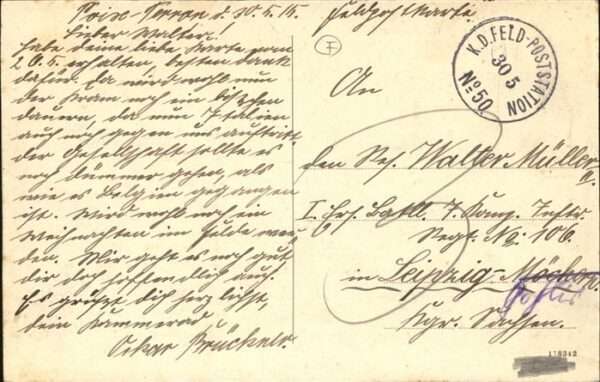 Poix-Terron d. 30.5.15.
Lieber Walter!
Habe deine liebe Karte vom
2.5. erhalten, besten Dank
dafür. Da wird wohl nun
der Kram noch ein bißchen
dauern, da nun Italien
auch noch gegen uns auftritt
der Gesellschaft sollte es
noch dummer gehen, als
wie es Belgien gegangen
ist. Wird wohl noch ein
Weihnachten im Felde wer-
den. Mir geht es noch gut
dir doch hoffendlich auch.
Es grüßt dich herzlichst,
dein Kammerad
Oskar Brückner.
Feldpostkarte
F
K.D. FELD-POSTSTATION
30 5
No 50
An
den Res. Walter Müller
II.
I. Ers. Batll. 7. Komp. Inftr.
Regt. No: 106.
in Leipzig-Möckern
Gohlis
Kgr. Sachsen.